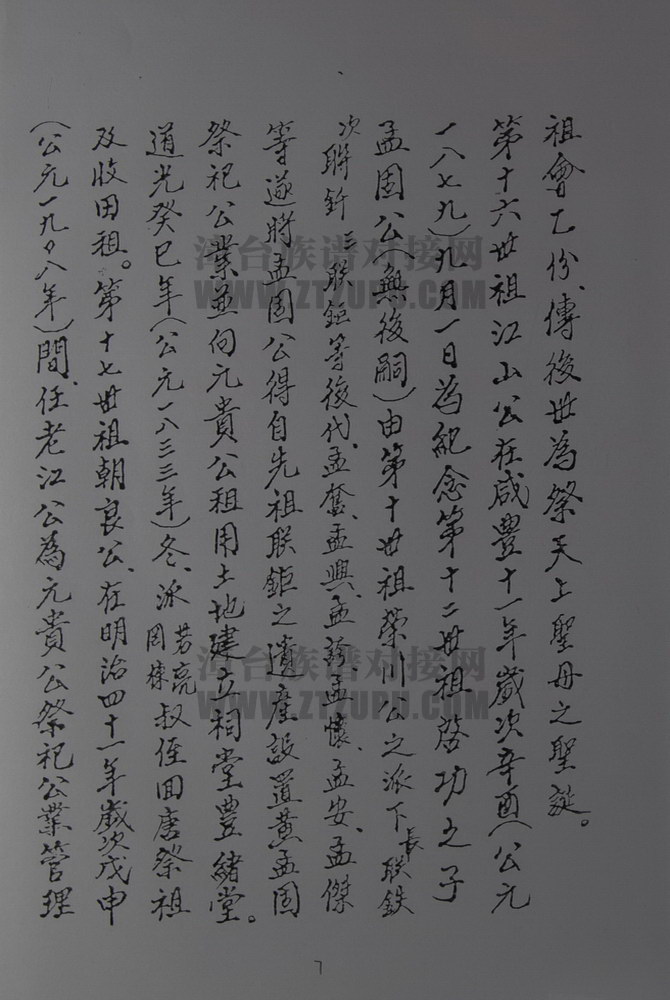 祖會乙份、傳後世為祭天上聖母之聖誕。
第十六世祖江山公在咸豐十一年歲次辛酉(公元
一八七九)九月一日為紀念第十二世祖啓功之子
孟固公(無後嗣)由第十世祖榮川公之派下長联鉄
次联釬三联鉅等後代、孟奮、孟興、孟 孟懷、孟安、孟傑
等遂將孟固公得自先祖联鉅之遺產設置黄孟固
祭祀公業並向元貴公租用土地建立祠堂豊緒堂。
道光癸巳年(公元一八三三年)冬、派芳亮 叔侄回唐祭祖
及收田租。第十七世祖朝良公、在明治四十一年歲次戊申
(公元一九〇八年)間、任老江公為元貴公祭祀公業管理
7
湾台族谱对接网
WWW.ZTZUPU.COM
湾台族谱对接网
WWW.ZTZUPU.COM